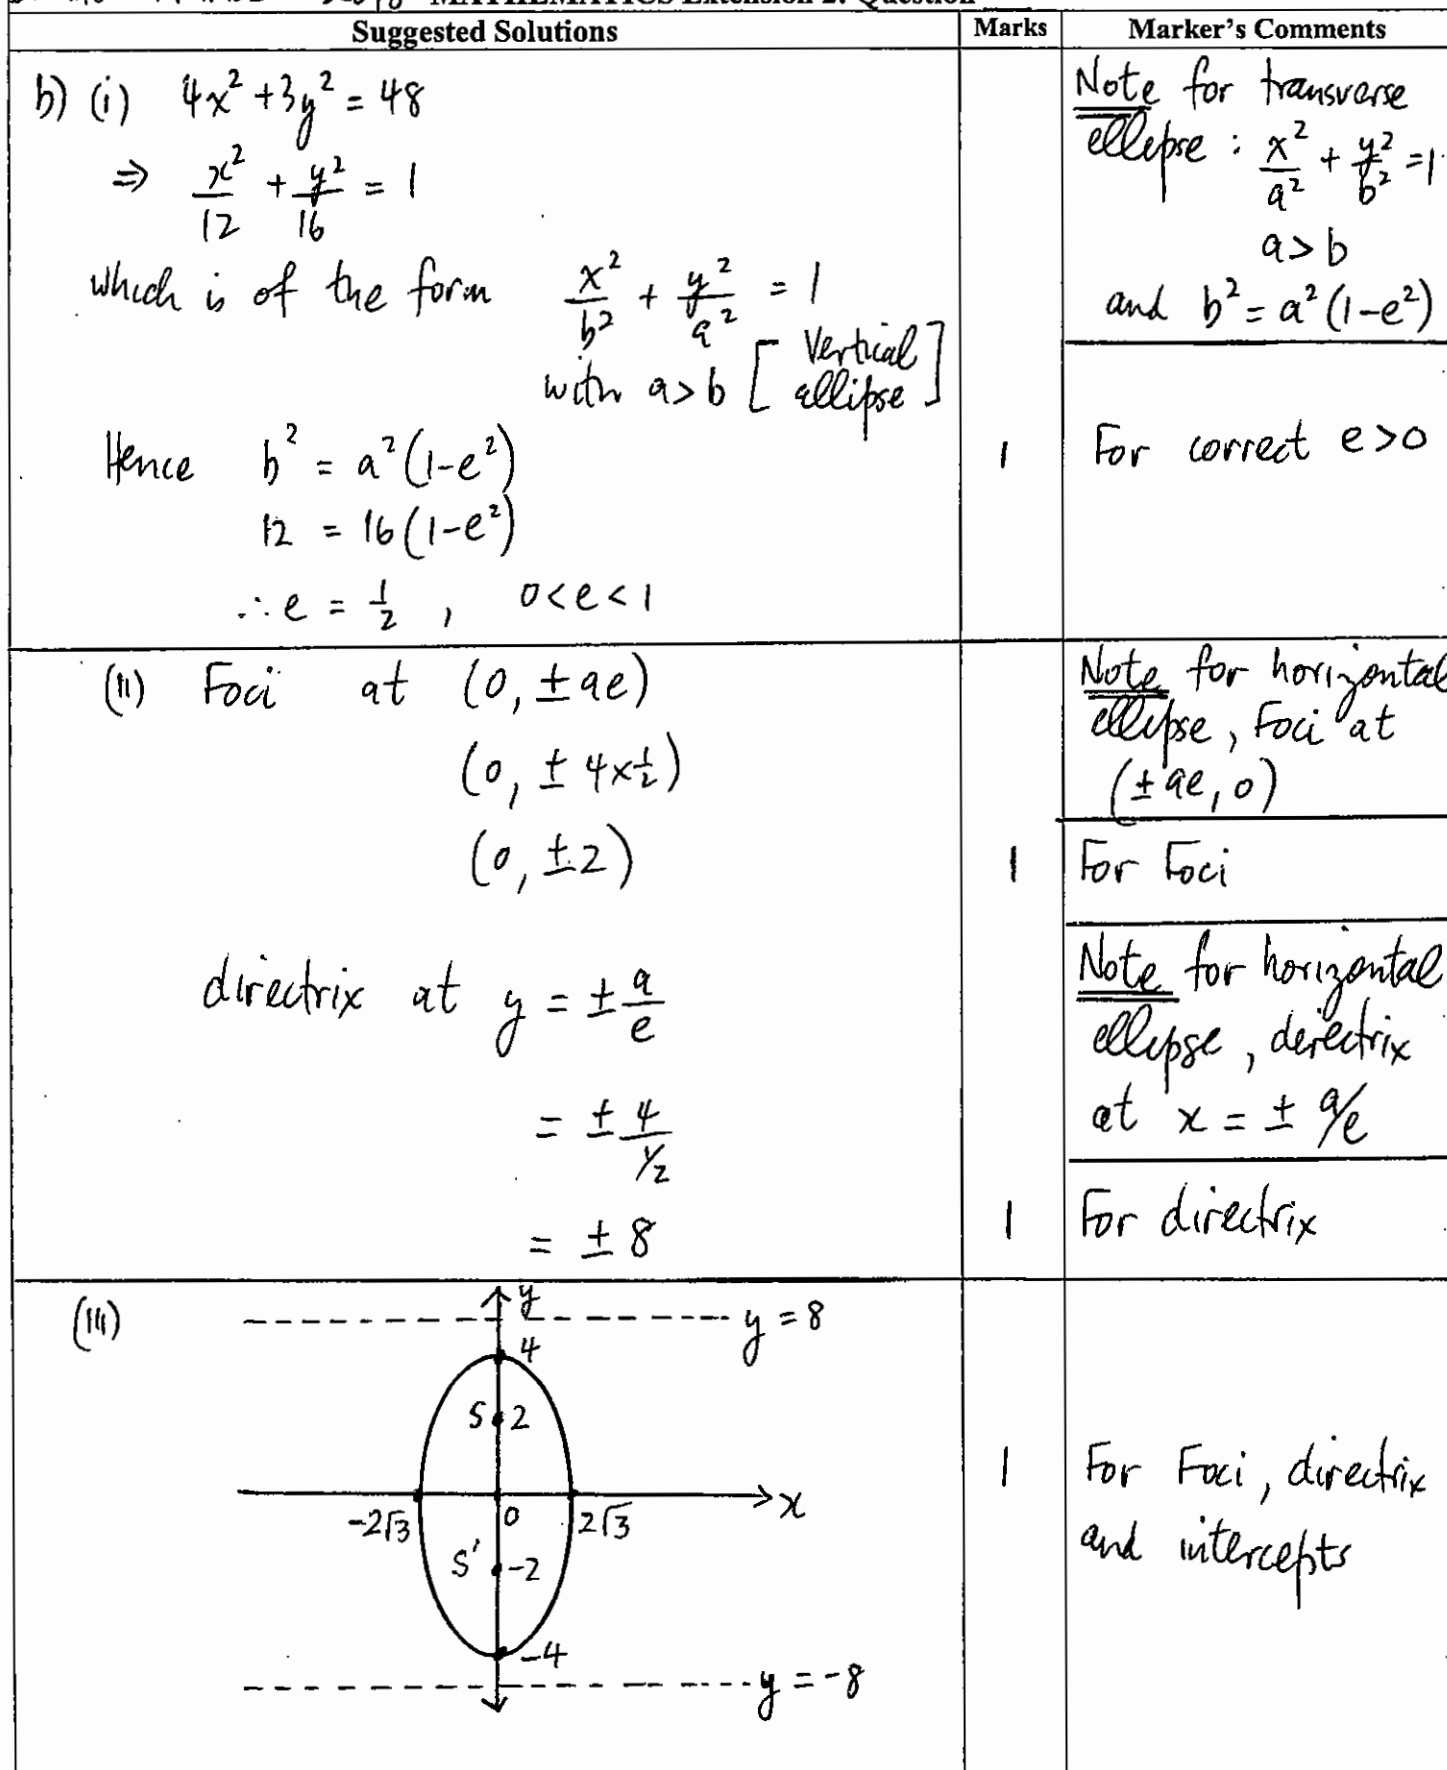 MATHEMATICS Extension 2: Question
Suggested Solutions
Marks
Marker's Comments
b) (i) 4x² + 3y² = 48
⇒ x²/12 + y²/16 = 1
which is of the form x²/b² + y²/a² = 1
with a>b [Vertical ellipse]
Hence b² = a²(1-e²)
12 = 16(1-e²)
∴ e = 1/2 , 0<e<1
Note for transverse
ellepse : x²/a² + y²/b² = 1
a>b
and b² = a²(1-e²)
1
For correct e>0
(ii) Foci at (0, ±ae)
(0, ± 4×1/2)
(0, ±2)
directrix at y = ± a/e
= ± 4/1/2
= ± 8
Note for horizontal
ellipse, Foci at
(±ae, 0)
1
For Foci
Note for horizontal
ellipse, derectrix
at x = ± a/e
1
For directrix
(iii)
y
y = 8
4
S 2
-2√3
0
2√3
x
S' -2
-4
y = -8
1
For Foci, directrix
and intercepts